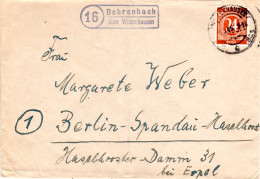 16
Dohrenbach
über Witzenhausen
24
Frau
Margarete Weber
1
Berlin-Spandau-Haselhorst
Haselhorster-Damm 31
bei Eppel